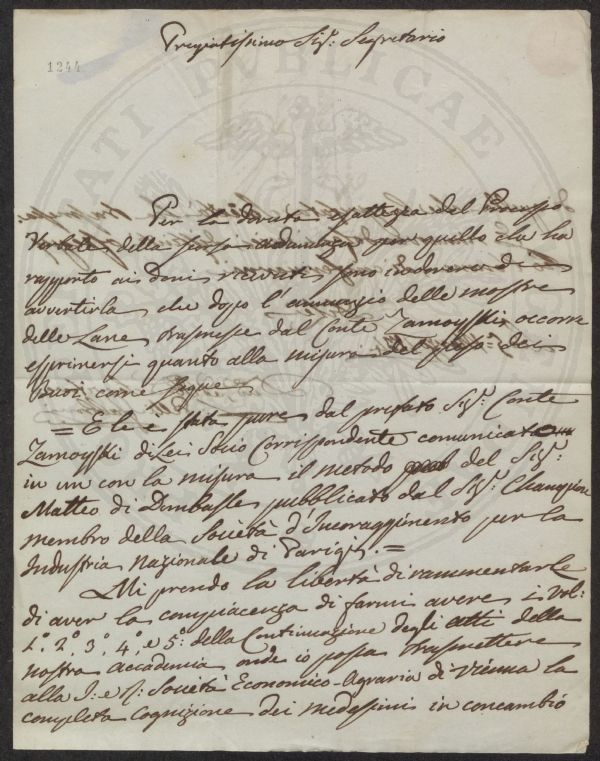 Pregiatissimo Sig: Segretario
1244
PUBLICAE
Per la dovuta esattezza del Processo
Verbale della scorsa adunanza per quello che ha
rapporto ai doni ricevuti sono in dovere di
avvertirla che dopo l'annunzio delle mostre
delle Lane trasmesse dal Conte Zamoyski occorre
esprimersi quanto alla misura del peso dei
Buoi come segue
= E le è stata pure dal prefato Sig: Conte
Zamoyski di Lei Socio Corrispondente comunicato
in un con la misura il metodo del Sig:
Matteo di Dombasle pubblicato dal Sig:
membro della Società d'Incoraggimento per la
Industria Nazionale di Parigi. =
Mi prendo la libertà di rammentarle
di aver la compiacenza di farmi avere i Vol:
1.° 2.° 3.° 4.° e 5.° della Continuazione degli atti della
nostra Accademia onde io possa trasmettere
alla I: e R: Società Economico-Agraria di Vienna la
completa Cognizione dei medessimi in concambio